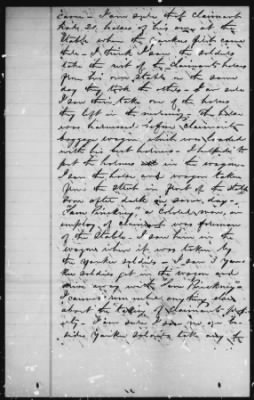 came - I am sure that claimant
had 20 horses of his own in the
Stable when the Yankees first came
there - I think I saw the soldiers
take the rest of the claimants horses
from his own Stable on the same
day they took the others - I am sure
I saw them take one of the horses
they left in the morning - The horse
was harnessed before claimants
baggage wagon which was loaded
with his best harness - I helped to
put the harness in the wagon -
I saw the horse and wagon taken
from the street in front of the Stable
soon after dark on same day -
Sam Pinckney, a colored man, in
employ of claimant was foreman
of the Stable - I saw him in the
wagon when it was taken by
the Yankee soldiers - I saw 3 Yankee
soldiers get in the wagon and
drive away with Sam Pinckney -
I cannot remember anything else
about the taking of claimants prop-
erty - I am sure I saw
Yankee soldiers take away the